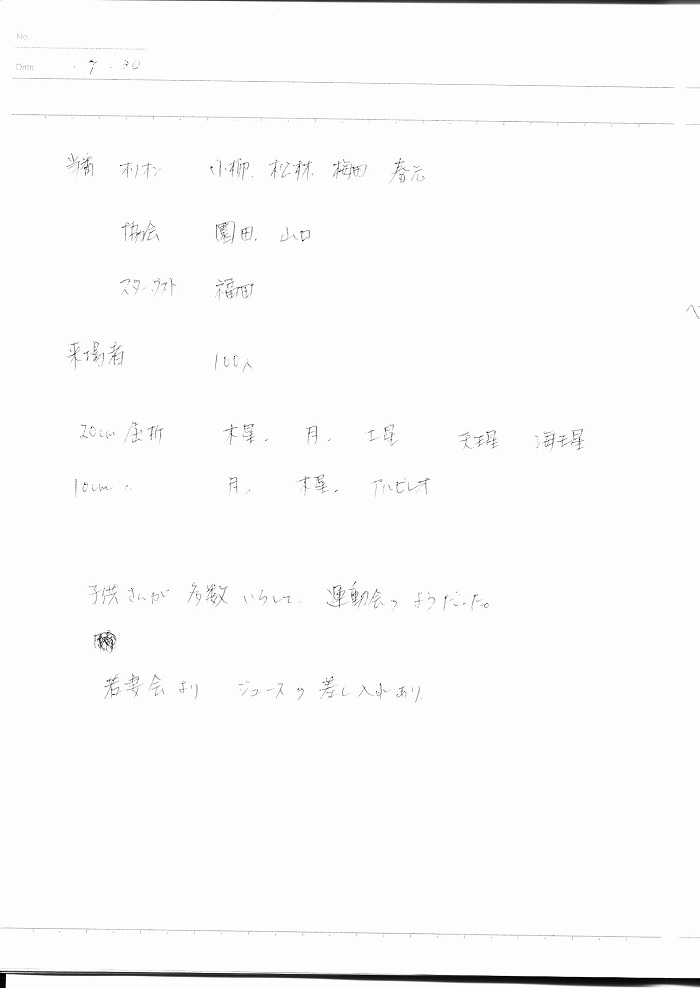 No.
Date ・7・30
当番 オリオン 小柳、松林、梅田 春元
協会 園田、山口
スターダスト 福田
来場者 100人
20cm 屈折 木星、月、土星 天王星 海王星
10cm 〃 月、木星、アルビレオ
子供さんが多数いらして、運動会のようだった。
若妻会よりジュースの差し入れあり。